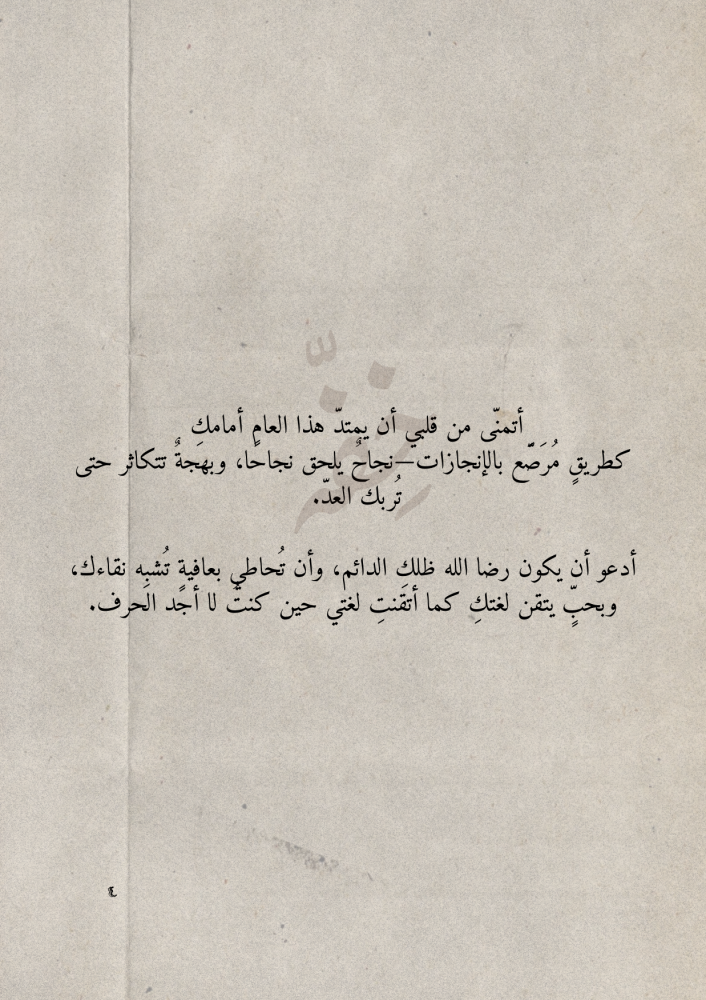 أتمنّى من قلبي أن يمتدّ هذا العام أمامكِ
كطريقٍ مُرَصّع بالإنجازات—نجاحٌ يلحق نجاحًا، وبهجةٌ تتكاثر حتى
تُربك العدّ.
أدعو أن يكون رضا الله ظلكِ الدائم، وأن تُحاطي بعافيةٍ تُشبِه نقاءك،
وبحبٍّ يتقن لغتكِ كما أتقَنتِ لغتي حين كنتُ لا أجد الحرف.
٤